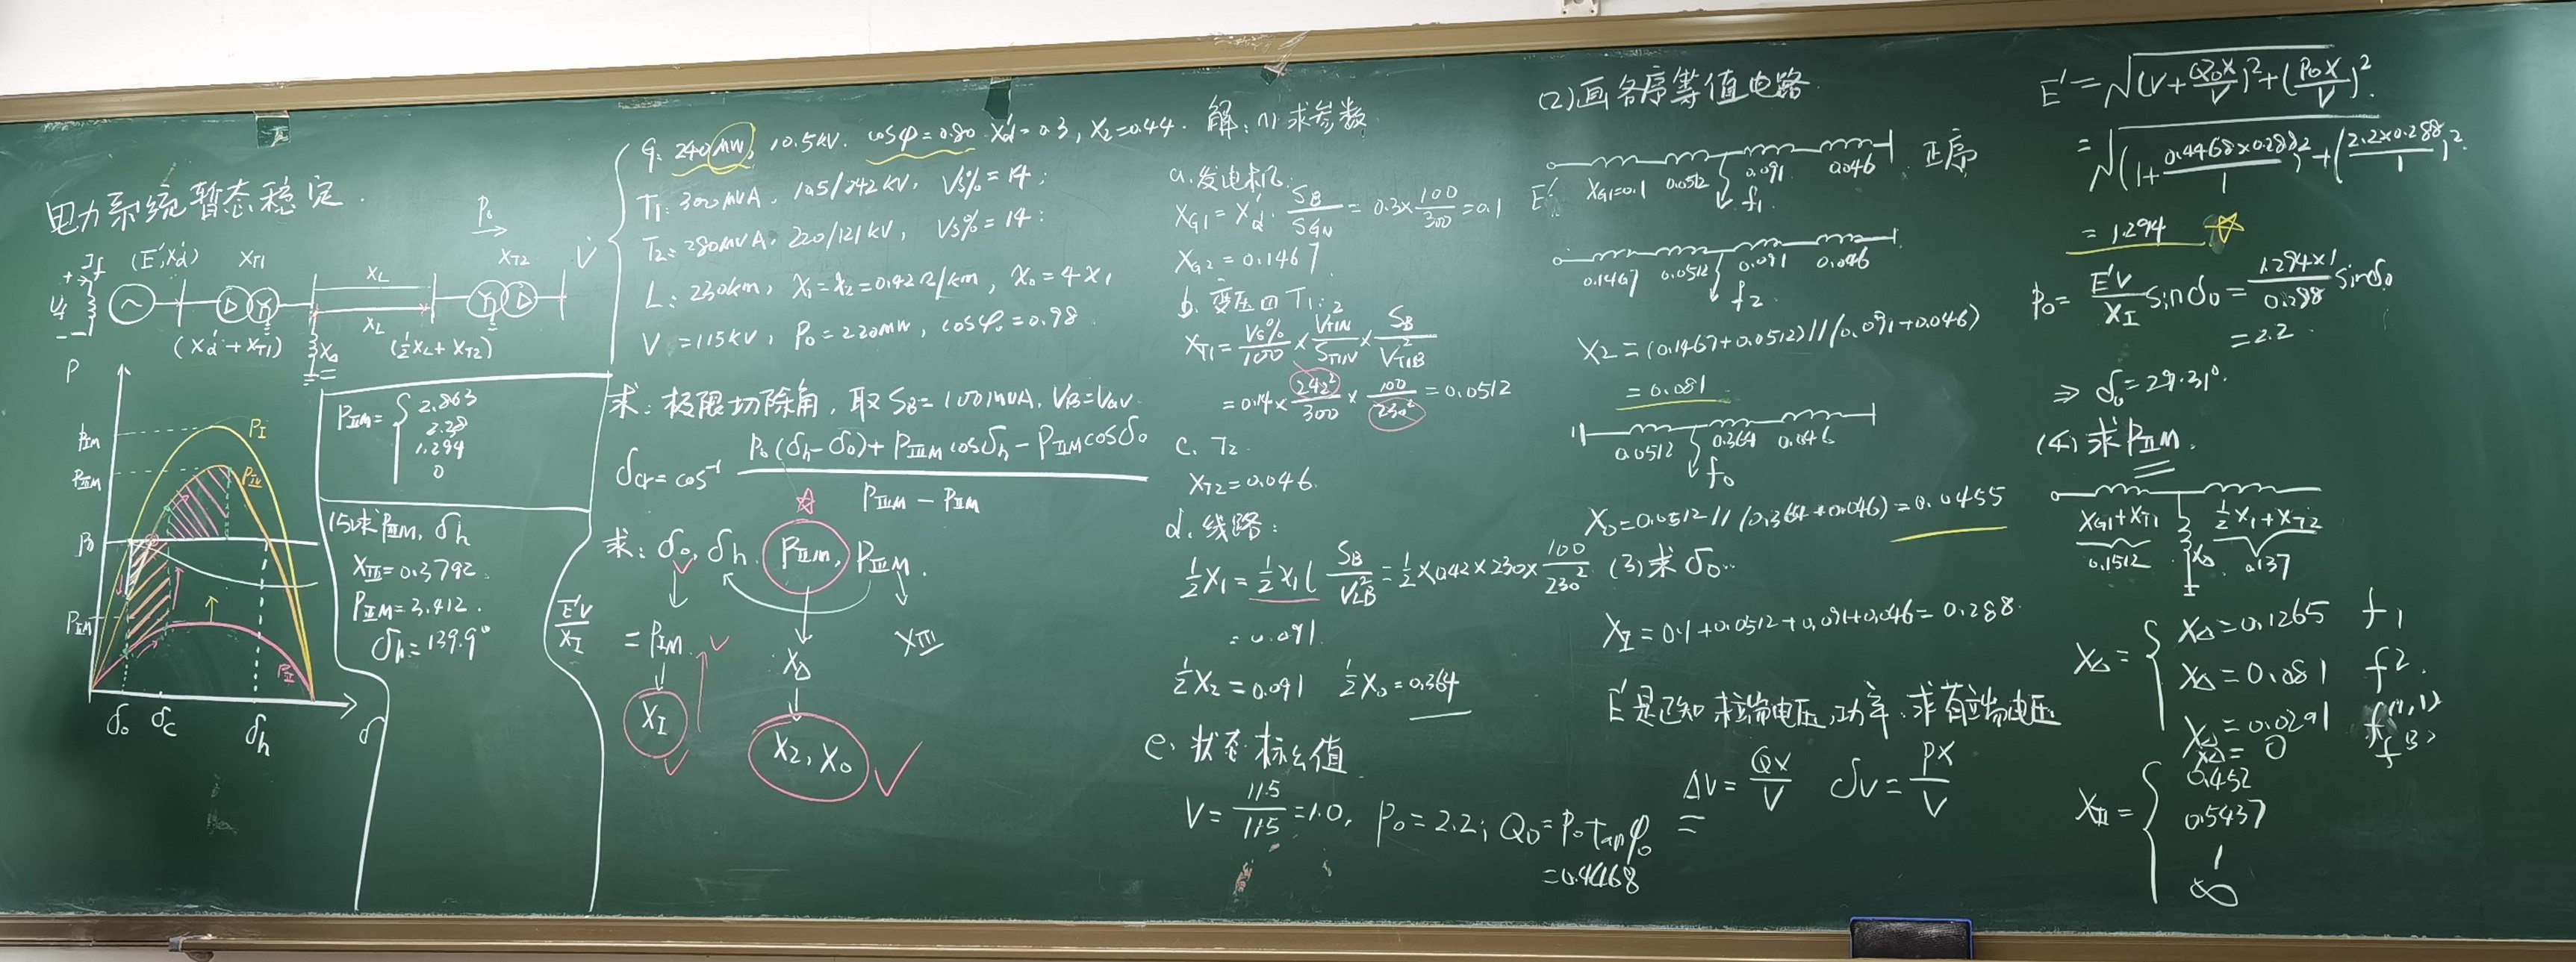 电力系统暂态稳定.
P₀
(E', X'd) X_T1 X_L X_T2 V̇
X_L
(X'd + X_T1) X_Δ (½X_L + X_T2)
P
P_ⅠM P_Ⅰ
P_ⅢM P_Ⅲ
P₀
P_ⅡM P_Ⅱ
δ₀ δc δh δ
P_ⅡM = { 2.863
2.38
1.294
0
(5)求P_ⅢM, δh
X_Ⅲ = 0.3792.
P_ⅢM = 3.412.
δh = 139.9°
G: 240MW, 10.5kV. cosφ = 0.80 X'd = 0.3, X₂ = 0.44.
T₁: 300MVA, 10.5/242kV, Vs% = 14;
T₂: 280MVA, 220/121kV, Vs% = 14:
L: 230km, X₁ = X₂ = 0.42Ω/km, X₀ = 4X₁
V = 115kV, P₀ = 220MW, cosφ₀ = 0.98
求: 极限切除角, 取 S_B = 100MVA, V_B = Vav.
δcr = cos⁻¹ (P₀(δh − δ₀) + P_ⅢM cosδh − P_ⅡM cosδ₀) / (P_ⅢM − P_ⅡM)
求: δ₀, δh. P_ⅡM, P_ⅢM.
E'V/X_Ⅰ = P_ⅠM X_Δ X_Ⅲ
X_Ⅰ X₂, X₀
解: (1) 求参数
a. 发电机:
X_G1 = X'd · S_B/S_GN = 0.3 × 100/300 = 0.1
X_G2 = 0.1467
b. 变压四 T₁:
X_T1 = Vs%/100 × V²_T1N/S_T1N × S_B/V²_T1B
= 0.14 × 242²/300 × 100/230² = 0.0512
c. T₂
X_T2 = 0.046.
d. 线路:
½X₁ = ½x₁l S_B/V²_LB = ½ × 0.42 × 230 × 100/230²
= 0.091.
½X₂ = 0.091 ½X₀ = 0.364
e. 状态标幺值
V = 115/115 = 1.0, P₀ = 2.2; Q₀ = P₀ tanφ₀
= 0.4468
(2) 画各序等值电路
E' X_G1=0.1 0.0512 0.091 0.046 正序
f₁
0.1467 0.0512 0.091 0.046
f₂
X₂ = (0.1467 + 0.0512) // (0.091 + 0.046)
= 0.081
0.0512 0.364 0.046
f₀
X₀ = 0.0512 // (0.364 + 0.046) = 0.0455
(3) 求 δ₀.
X_Ⅰ = 0.1 + 0.0512 + 0.091 + 0.046 = 0.288.
E'是已知末端电压,功率.求首端电压
ΔV = QX/V δV = PX/V
E' = √((V + Q₀X/V)² + (P₀X/V)²).
= √((1 + 0.4468×0.288/1)² + (2.2×0.288/1)²)
= 1.294
P₀ = E'V/X_Ⅰ sinδ₀ = 1.294×1/0.288 sinδ₀
= 2.2.
⇒ δ₀ = 29.31°.
(4) 求 P_ⅡM.
X_G1+X_T1 ½X₁+X_T2
0.1512 X_Δ 0.137
X_Δ = { X_Δ = 0.1265 f¹
X_Δ = 0.081 f².
X_Δ = 0.0291 f⁽¹·¹⁾
X_Δ = 0 f⁽³⁾
X_Ⅱ = { 0.452
0.5437
1
∞